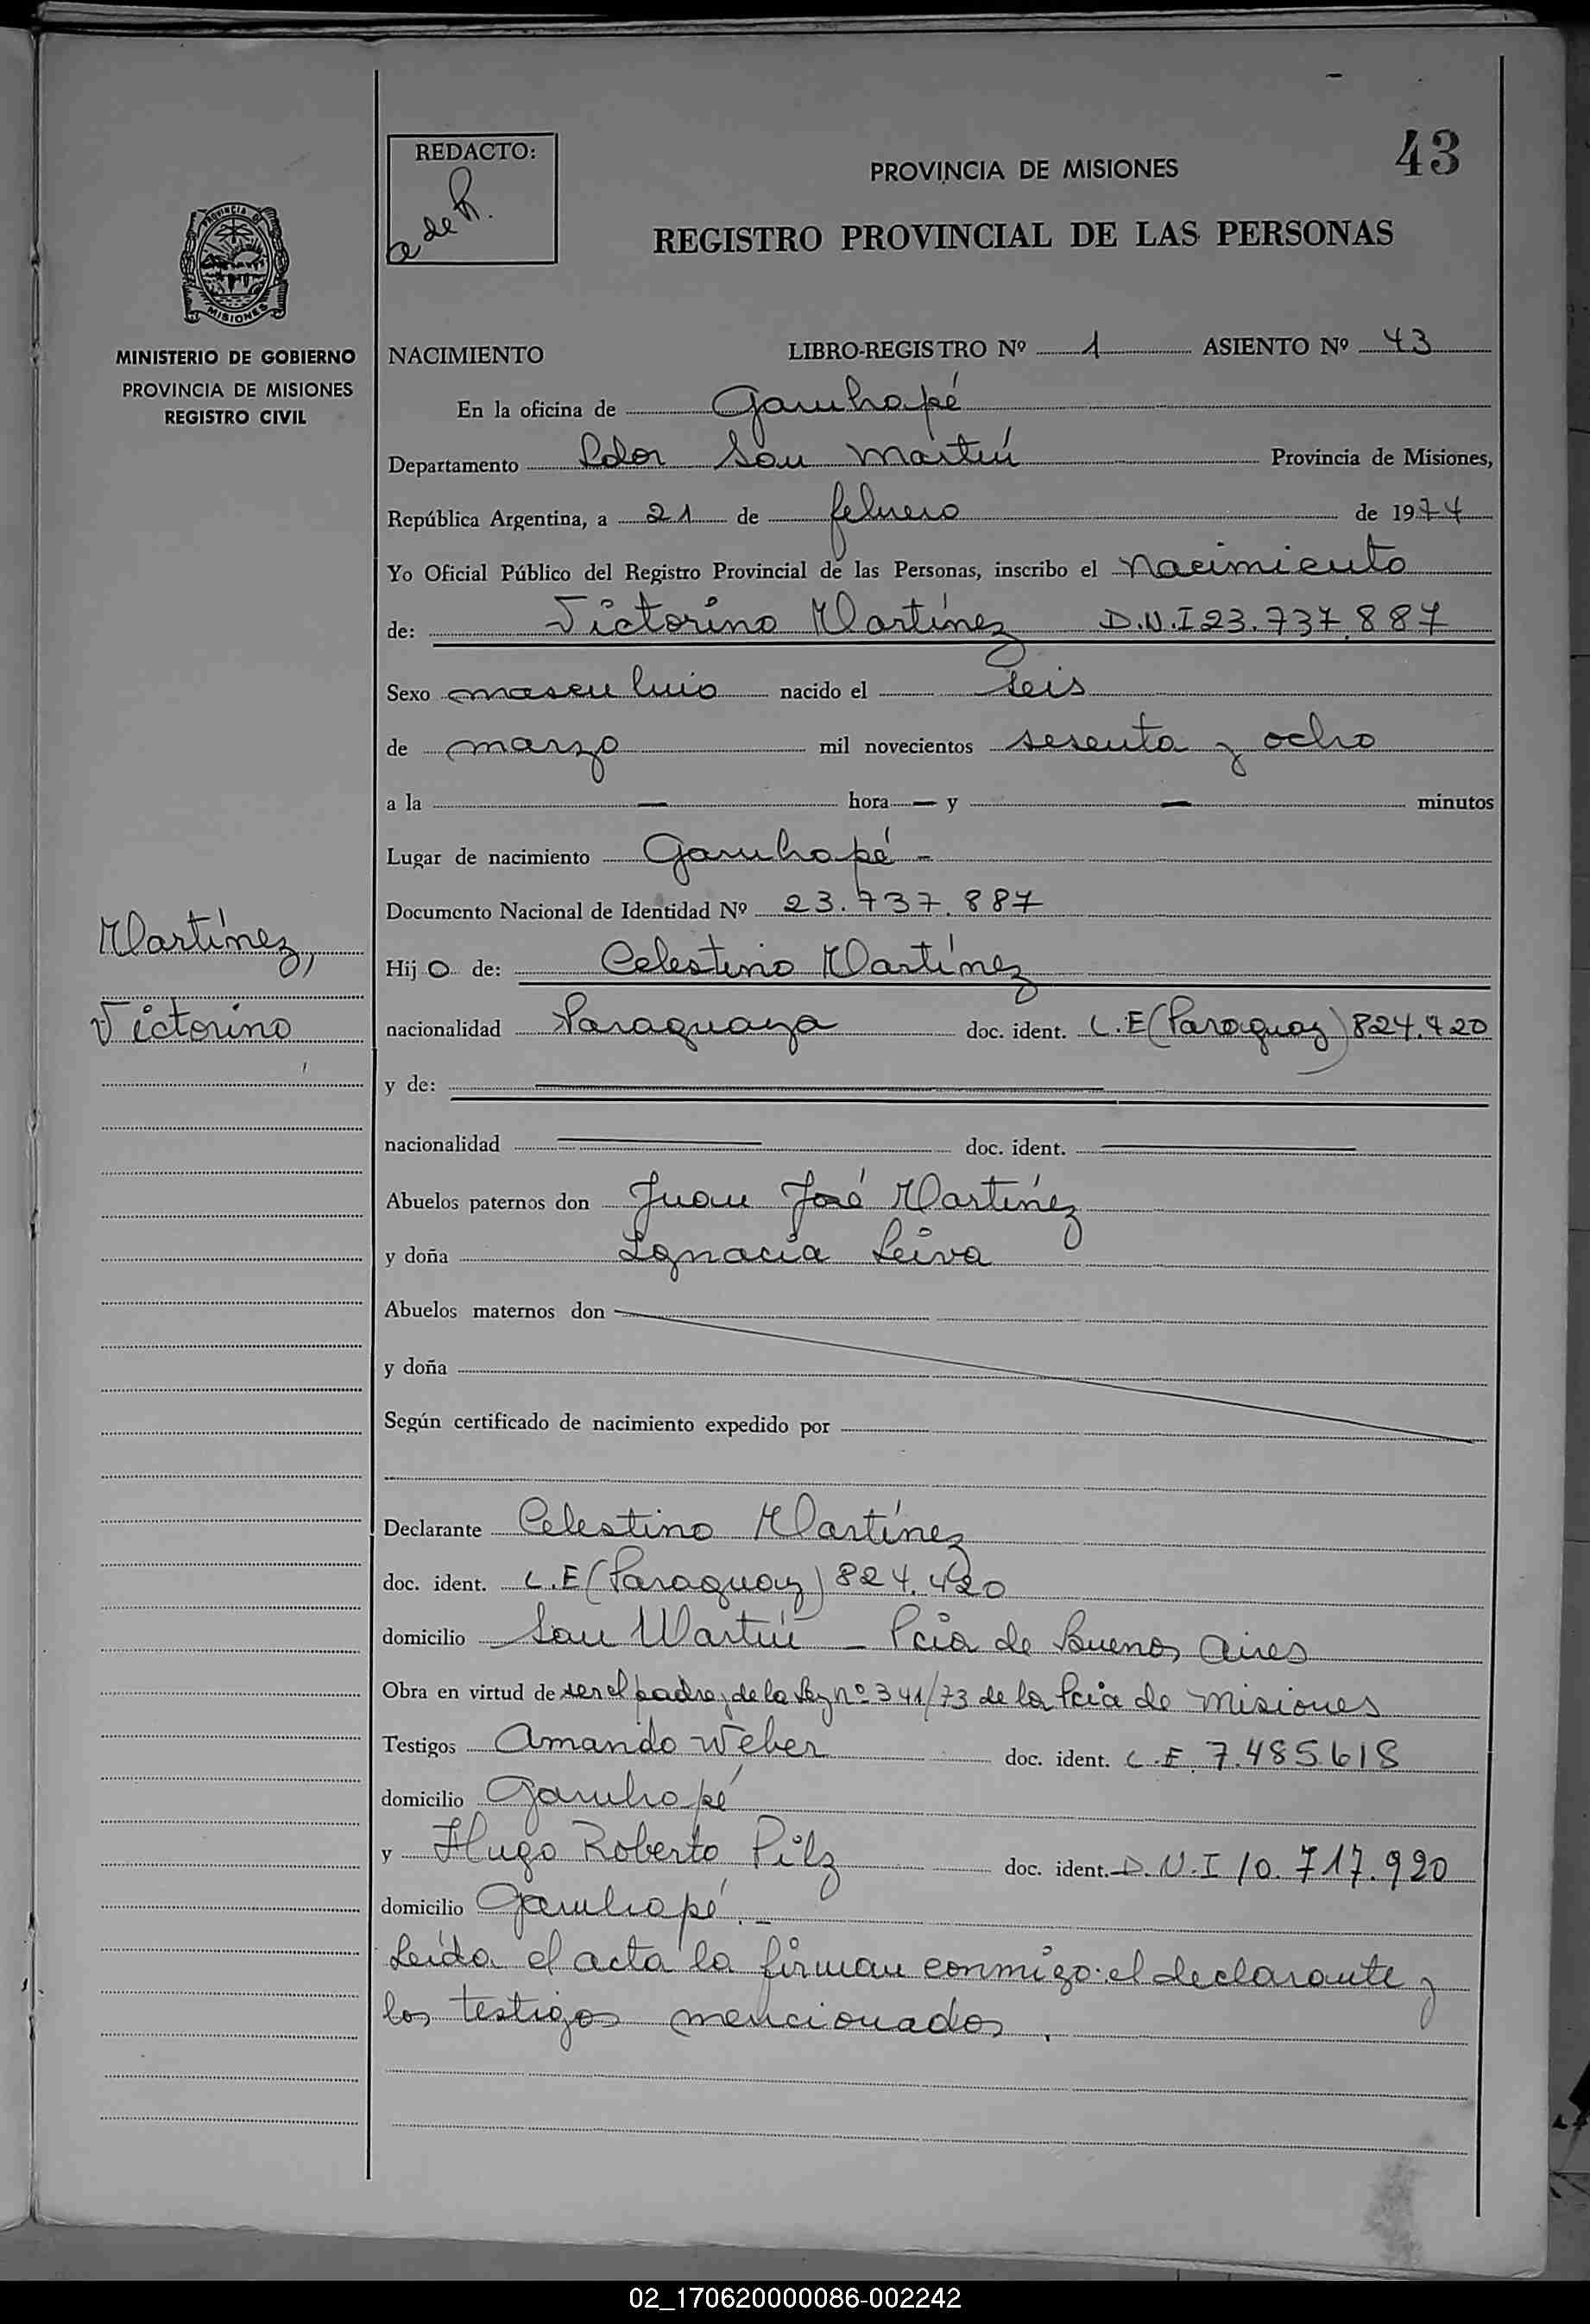 43
REDACTO:
a de R.
PROVINCIA DE MISIONES
REGISTRO PROVINCIAL DE LAS PERSONAS
PROVINCIA DE
MISIONES
MINISTERIO DE GOBIERNO
PROVINCIA DE MISIONES
REGISTRO CIVIL
NACIMIENTO LIBRO-REGISTRO Nº 1 ASIENTO Nº 43
En la oficina de Garuhapé
Departamento Ldor San Martín Provincia de Misiones,
República Argentina, a 21 de febrero de 1974
Yo Oficial Público del Registro Provincial de las Personas, inscribo el nacimiento
de: Victorino Martínez D.N.I 23.737.887
Sexo masculino nacido el seis
de marzo mil novecientos sesenta y ocho
a la — hora — y — minutos
Lugar de nacimiento Garuhapé -
Documento Nacional de Identidad Nº 23.737.887
Martínez,
Victorino
Hijo de: Celestino Martínez
nacionalidad Paraguaya doc. ident. C.E (Paraguay) 824.420
y de:
nacionalidad doc. ident.
Abuelos paternos don Juan José Martínez
y doña Ignacia Leiva
Abuelos maternos don
y doña
Según certificado de nacimiento expedido por
Declarante Celestino Martínez
doc. ident. C.E (Paraguay) 824.420
domicilio San Martín - Pcia de Buenos Aires
Obra en virtud de ser el padre y de la Ley nº 341/73 de la Pcia de Misiones
Testigos Amando Weber doc. ident. L.E. 7.485.618
domicilio Garuhapé
y Hugo Roberto Pilz doc. ident. D.N.I 10.717.920
domicilio Garuhapé.-
Leída el acta la firman conmigo el declarante y
los testigos mencionados.
02_170620000086-002242